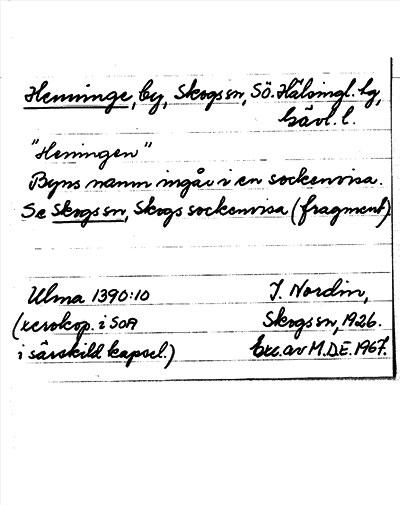 Henninge, by, Skogs sn, Sö. Hälsingl. hg,
Gävl. l.
"Heningen"
Byns namn ingår i en sockenvisa.
Se Skogs sn, Skogs sockenvisa (fragment)
Ulma 1390:10
J. Nordin,
(xerokop. i SOA
Skogs sn, 1926.
i särskild kapsel.)
Exc. av M.D.E. 1967.